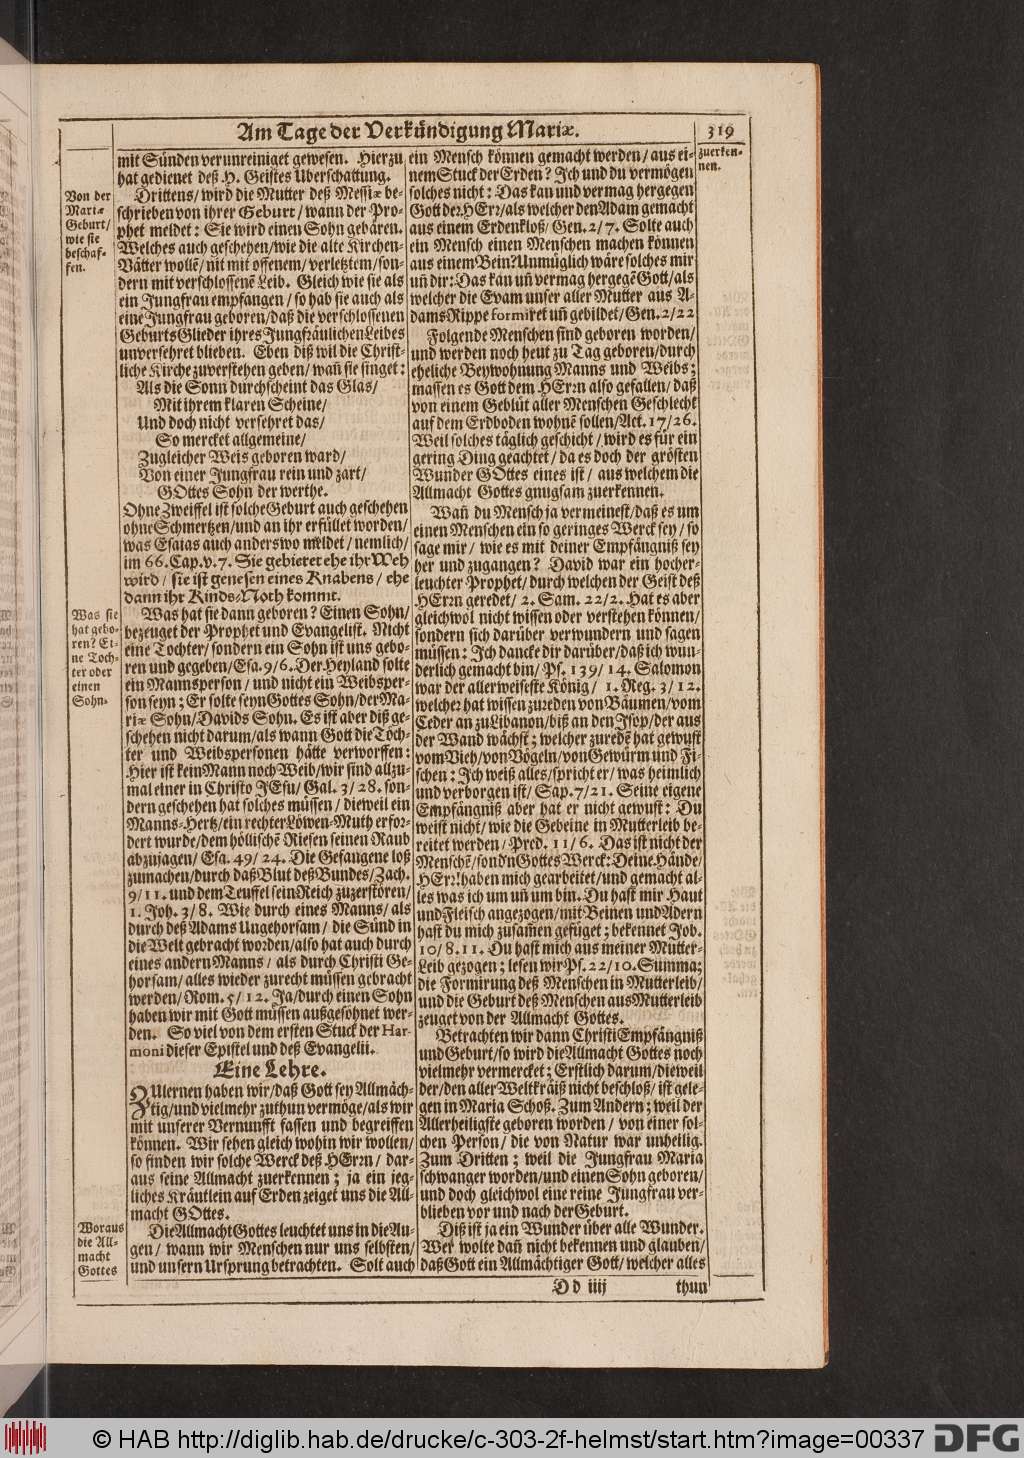 Am Tage der Verkündigung Mariæ.
319
Von der
Mariæ
Geburt/
wie sie
beschaf-
fen.
mit Sünden verunreiniget gewesen. Hierzu
hat gedienet deß H. Geistes Uberschattung.
Drittens/ wird die Mutter deß Messiæ be-
schrieben von ihrer Geburt/ wann der Pro-
phet meldet: Sie wird einen Sohn gebären.
Welches auch geschehen/wie die alte Kirchen-
Vätter wollē/ nit mit offenem/ verletztem/son-
dern mit verschlossenē Leib. Gleich wie sie als
ein Jungfrau empfangen/ so hab sie auch als
eine Jungfrau geboren/daß die verschlossenen
Geburts Glieder ihres Jungfräulichen Leibes
unversehret blieben. Eben diß wil die Christ-
liche Kirche zuverstehen geben/ wañ sie singet:
Als die Sonn durchscheint das Glas/
Mit ihrem klaren Scheine/
Und doch nicht versehret das/
So mercket allgemeine/
Zugleicher Weis geboren ward/
Von einer Jungfrau rein und zart/
GOttes Sohn der werthe.
Ohne Zweiffel ist solche Geburt auch geschehen
ohne Schmertzen/und an ihr erfüllet worden/
was Esaias auch anderswo meldet/ nemlich/
im 66. Cap. v. 7. Sie gebieret ehe ihr Weh
wird/ sie ist genesen eines Knabens/ ehe
dann ihr Kinds-Noth kommt.
Was sie
hat gebo-
ren? Ei-
ne Toch-
ter oder
einen
Sohn.
Was hat sie dann geboren? Einen Sohn/
bezeuget der Prophet und Evangelist. Nicht
eine Tochter/ sondern ein Sohn ist uns gebo-
ren und gegeben/Esa. 9/6. Der Heyland solte
ein Mannsperson/ und nicht ein Weibsper-
son seyn; Er solte seyn Gottes Sohn/der Ma-
riæ Sohn/Davids Sohn. Es ist aber diß ge-
schehen nicht darum/als wann Gott die Töch-
ter und Weibspersonen hätte verworffen:
Hier ist kein Mann noch Weib/wir sind allzu-
mal einer in Christo JEsu/ Gal. 3/28. son-
dern geschehen hat solches müssen/ dieweil ein
Manns-Hertz/ein rechter Löwen-Muth erfor-
dert wurde/dem höllischē Riesen seinen Raub
abzujagen/ Esa. 49/24. Die Gefangene loß
zumachen/durch daß Blut deß Bundes/Zach.
9/11. und dem Teuffel sein Reich zuzerstören/
1. Joh. 3/8. Wie durch eines Manns/ als
durch deß Adams Ungehorsam/ die Sünd in
die Welt gebracht worden/also hat auch durch
eines andern Manns/ als durch Christi Ge-
horsam/alles wieder zurecht müssen gebracht
werden/ Rom. 5/12. Ja/durch einen Sohn
haben wir mit Gott müssen außgesöhnet wer-
den. So viel von dem ersten Stuck der Har-
moni dieser Epistel und deß Evangelii.
Eine Lehre.
ZUlernen haben wir/daß Gott sey Allmäch-
tig/und vielmehr zuthun vermöge/als wir
mit unserer Vernunfft fassen und begreiffen
können. Wir sehen gleich wohin wir wollen/
so finden wir solche Werck deß HErrn/ dar-
aus seine Allmacht zuerkennen; ja ein jeg-
liches Kräutlein auf Erden zeiget uns die All-
macht GOttes.
Woraus
die All-
macht
Gottes
Die Allmacht Gottes leuchtet uns in die Au-
gen/ wann wir Menschen nur uns selbsten/
und unsern Ursprung betrachten. Solt auch
zuerken-
nen.
ein Mensch können gemacht werden/aus ei-
nem Stuck der Erden? Ich und du vermögen
solches nicht: Das kan und vermag hergegen
Gott der HErr/als welcher den Adam gemacht
aus einem Erdenkloß/ Gen. 2/7. Solte auch
ein Mensch einen Menschen machen können
aus einem Bein? Unmüglich wäre solches mir
uñ dir: Das kan uñ vermag hergegē Gott/als
welcher die Evam unser aller Mutter aus A-
dams Rippe formiret uñ gebildet/Gen. 2/22
Folgende Menschen sind geboren worden/
und werden noch heut zu Tag geboren/durch
eheliche Beywohnung Manns und Weibs;
massen es Gott dem HErrn also gefallen/ daß
von einem Geblüt aller Menschen Geschlecht
auf dem Erdboden wohnē sollen/Act. 17/26.
Weil solches täglich geschicht/ wird es für ein
gering Ding geachtet/da es doch der grösten
Wunder GOttes eines ist/ aus welchem die
Allmacht Gottes gnugsam zuerkennen.
Wañ du Mensch ja vermeinest/daß es um
einen Menschen ein so geringes Werck sey/ so
sage mir/ wie es mit deiner Empfängniß sey
her und zugangen? David war ein hocher-
leuchter Prophet/durch welchen der Geist deß
HErrn geredet/ 2. Sam. 22/2. Hat es aber
gleichwol nicht wissen oder verstehen können/
sondern sich darüber verwundern und sagen
müssen: Ich dancke dir darüber/daß ich wun-
derlich gemacht bin/ Ps. 139/14. Salomon
war der allerweiseste König/ 1. Reg. 3/12.
welcher hat wissen zureden von Bäumen/vom
Ceder an zu Libanon/biß an den Isop/der aus
der Wand wächst; welcher zuredē hat gewust
vom Vieh/von Vögeln/von Gewürm und Fi-
schen: Ich weiß alles/spricht er/ was heimlich
und verborgen ist/ Sap. 7/21. Seine eigene
Empfängniß aber hat er nicht gewust: Du
weist nicht/wie die Gebeine in Mutterleib be-
reitet werden/ Pred. 11/6. Das ist nicht der
Menschē/sond'n Gottes Werck: Deine Hände/
HErr! haben mich gearbeitet/und gemacht al-
les was ich um uñ um bin. Du hast mir Haut
und Fleisch angezogen/mit Beinen und Adern
hast du mich zusam̃en gefüget; bekennet Job.
10/8.11. Du hast mich aus meiner Mutter-
Leib gezogen; lesen wir Ps. 22/10. Summa;
die Formirung deß Menschen in Mutterleib/
und die Geburt deß Menschen aus Mutterleib
zeuget von der Allmacht Gottes.
Betrachten wir dann Christi Empfängniß
und Geburt/so wird die Allmacht Gottes noch
vielmehr vermercket; Erstlich darum/dieweil
der/den aller Weltkräiß nicht beschloß/ist gele-
gen in Maria Schoß. Zum Andern; weil der
Allerheiligste geboren worden/ von einer sol-
chen Person/ die von Natur war unheilig.
Zum Dritten; weil die Jungfrau Maria
schwanger worden/und einen Sohn geboren/
und doch gleichwol eine reine Jungfrau ver-
blieben vor und nach der Geburt.
Diß ist ja ein Wunder über alle Wunder.
Wer wolte dañ nicht bekennen und glauben/
daß Gott ein Allmächtiger Gott/ welcher alles
D d iiij
thun
© HAB http://diglib.hab.de/drucke/c-303-2f-helmst/start.htm?image=00337
DFG